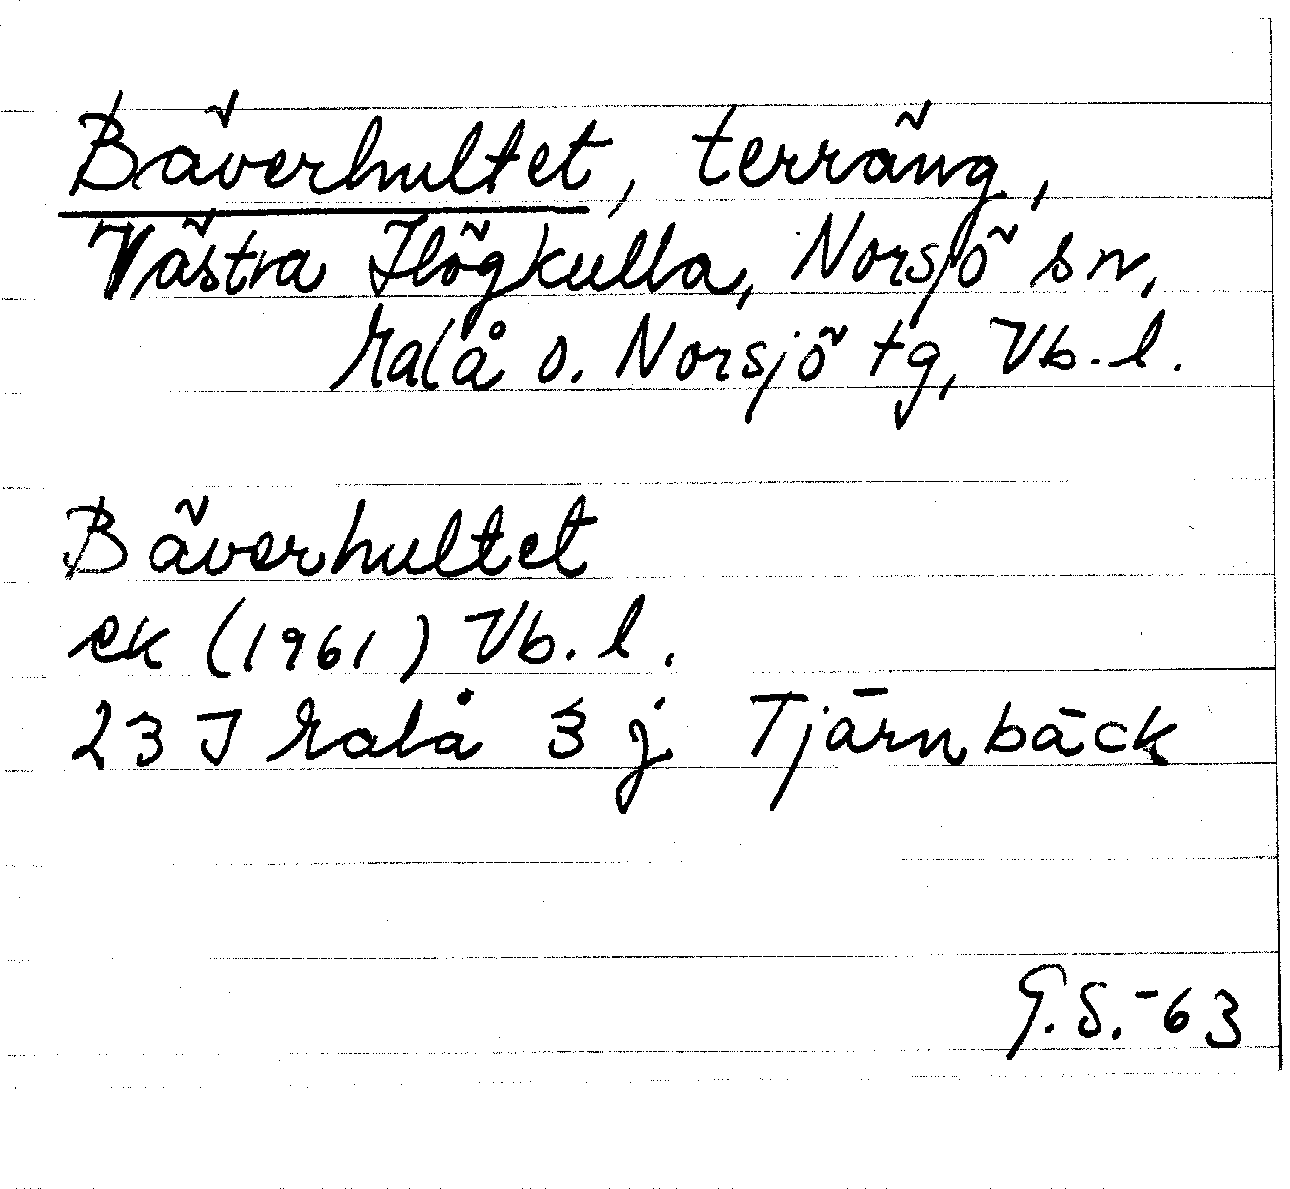 Bäverhultet, terräng,
Västra Högkulla, Norsjö sn,
Malå o. Norsjö tg, Vb. l.
Bäverhultet
ek (1961) Vb. l.
23 I Malå 3 j Tjärnbäck
G.S. -63